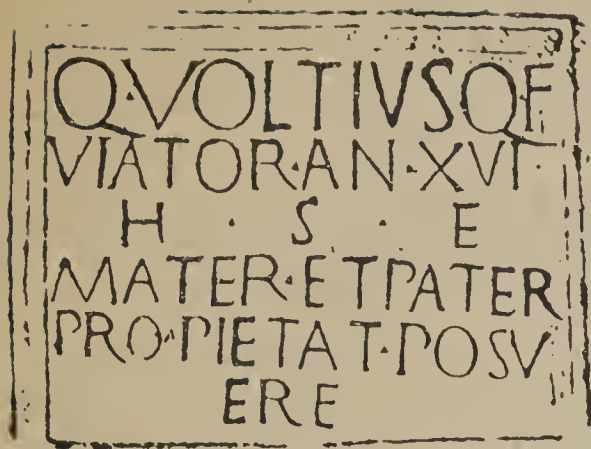 Q·VOLTIVSQF
VIATOR·AN·XVI·
H · S · E
MATER·ETPATER
PRO·PIETAT·POSV
ERE